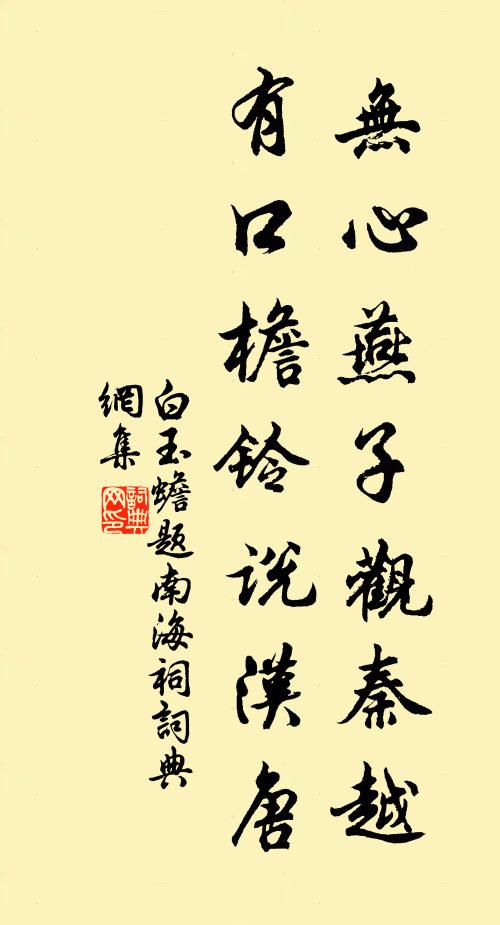 無心燕子觀秦越
有口檐鈴説漢唐
白玉蟾題南海祠詞典
網集
詞典
网印